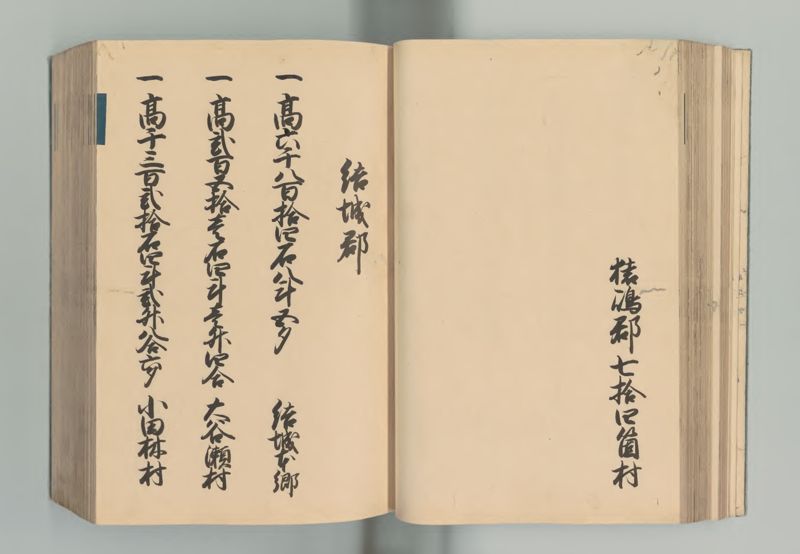 猿嶋郡七拾四箇村
結城郡
一高六千八百拾四石八斗五夕 結城本郷
一高弐百五拾壱石四斗壱升四合 大谷瀬村
一高千三百弐拾石四斗弐升八合六夕 小田林村